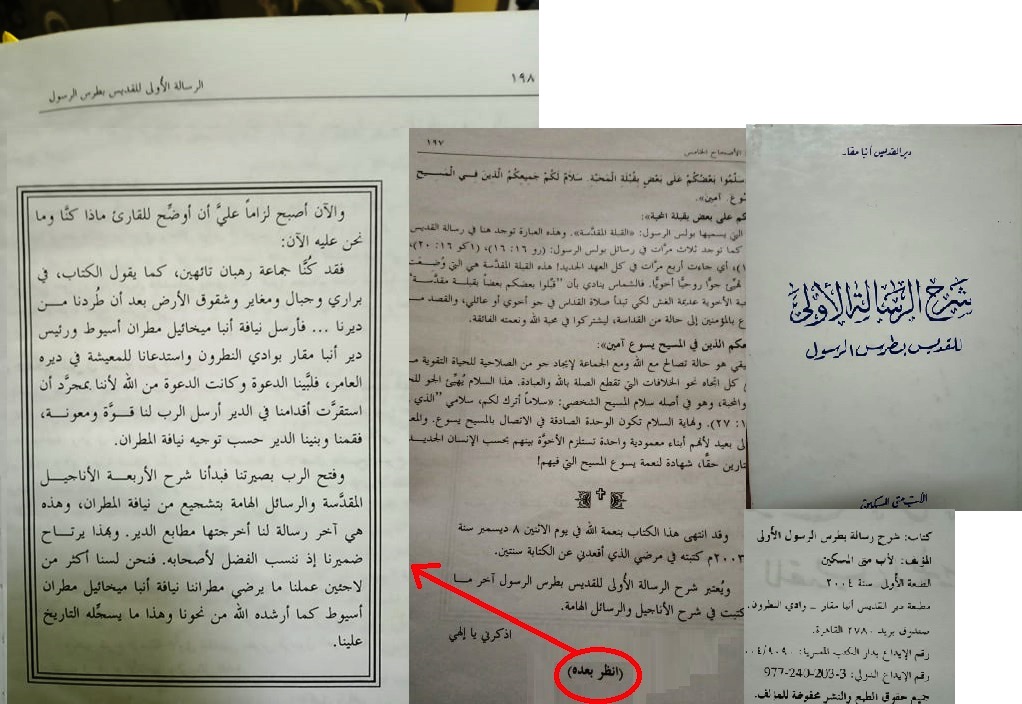 دير القديس أنبا مقار
شرح الرسالة الأولى
للقديس بطرس الرسول
الأب متى المسكين
كتاب: شرح رسالة بطرس الرسول الأولى
المؤلف: الأب متى المسكين
الطبعة الأولى سنة ٢٠٠٤
مطبعة دير القديس أنبا مقار - وادي النطرون.
صندوق بريد ٢٧٨٠ القاهرة.
رقم الإيداع بدار الكتب المصرية: ٠٠٤/٩٠٩٠
رقم الإيداع الدولي: 977-240-203-3
جميع حقوق الطبع والنشر محفوظة للمؤلف.
الأصحاح الخامس ١٩٧
سلِّمُوا بَعْضُكُمْ عَلَى بَعْضٍ بِقُبْلَةِ الْمَحَبَّةِ. سَلاَمٌ لَكُمْ جَمِيعِكُمُ الَّذِينَ فِي الْمَسِيحِ
وعَ. آمين».
كم على بعض بقبلة المحبة»:
التي يسميها بولس الرسول: «القبلة المقدَّسة». وهذه العبارة توجد هنا في رسالة القديس
كما توجد ثلاث مرَّات في رسائل بولس الرسول: (رو ١٦: ١٦)، (١كو ١٦: ٢٠)،
أي جاءت أربع مرَّات في كل العهد الجديد! هذه القبلة المقدسة هي التي وُضِعَت
تُهيِّئ جوًّا روحيًّا أخويًّا. فالشماس ينادي بأن "قبِّلوا بعضكم بعضاً بقبلة مقدسة"
بة الأخوية عديمة الغش لكي تبدأ صلاة القداس في جو أخوي أو عائلي، والقصد مـ
ع بالمؤمنين إلى حالة من القداسة، ليشتركوا في محبة الله ونعمته الفائقة.
عكم الذين في المسيح يسوع آمين»:
يقي هو حالة تصالح مع الله ومع الجماعة لإيجاد جو من الصلاحية للحياة التقوية
كل اتجاه نحو الخلافات التي تقطع الصلة بالله والعبادة. هذا السلام يُهيِّئ الجو
والمحبة، وهو في أصله سلام المسيح الشخصي: «سلاماً أترك لكم، سلامي "الذي
١: ٢٧). ونهاية السلام تكون الوحدة الصادقة في الاتصال بالمسيح يسوع.
لى بعيد لأنهم أبناء معمودية واحدة تستلزم الأخوَّة بينهم بحسب الإنسان الجديـد
تارين حقًّا، شهادة لنعمة يسوع المسيح التي فيهم!
وقد انتهى هذا الكتاب بنعمة الله في يوم الاثنين ٨ ديسمبر سنة
٢٠٠٣م كتبته في مرضي الذي أقعدني عن الكتابة سنتين.
ويُعتبر شرح الرسالة الأُولى للقديس بطرس الرسول آخر مـا
كتبت في شرح الأناجيل والرسائل الهامة.
اذكرني يا إلهي
(انظر بعده)
١٩٨ الرسالة الأُولى للقديس بطرس الرسول
والآن أصبح لزاماً عليَّ أن أوضِّح للقارئ ماذا كنَّا وما
نحن عليه الآن:
فقد كُنَّا جماعة رهبان تائهين، كما يقول الكتاب، في
براري وجبال ومغاير وشقوق الأرض بعد أن طُردنا مـن
ديرنا ... فأرسل نيافة أنبا ميخائيل مطران أسيوط ورئيس
دير أنبا مقار بوادي النطرون واستدعانا للمعيشة في ديره
العامر، فلبَّينا الدعوة وكانت الدعوة من الله لأننا بمجرَّد أن
استقرَّت أقدامنا في الدير أرسل الرب لنا قـوَّة ومعونـة،
فقمنا وبنينا الدير حسب توجيه نيافة المطران.
وفتح الرب بصيرتنا فبدأنا شرح الأربعـة الأناجيـل
المقدَّسة والرسائل الهامة بتشجيع من نيافة المطران، وهذه
هي آخر رسالة لنا أخرجتها مطابع الدير. وبهذا يرتـاح
ضميرنا إذ ننسب الفضل لأصحابه. فنحن لسنا أكثر من
لاجئين عملنا ما يرضي مطراننا نيافة أنبا ميخائيل مطران
أسيوط كما أرشده الله من نحونا وهذا ما يسجِّله التاريخ
علينا.